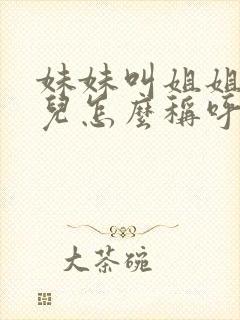 妹妹叫姐姐
兒怎麼稱呼
大茶碗